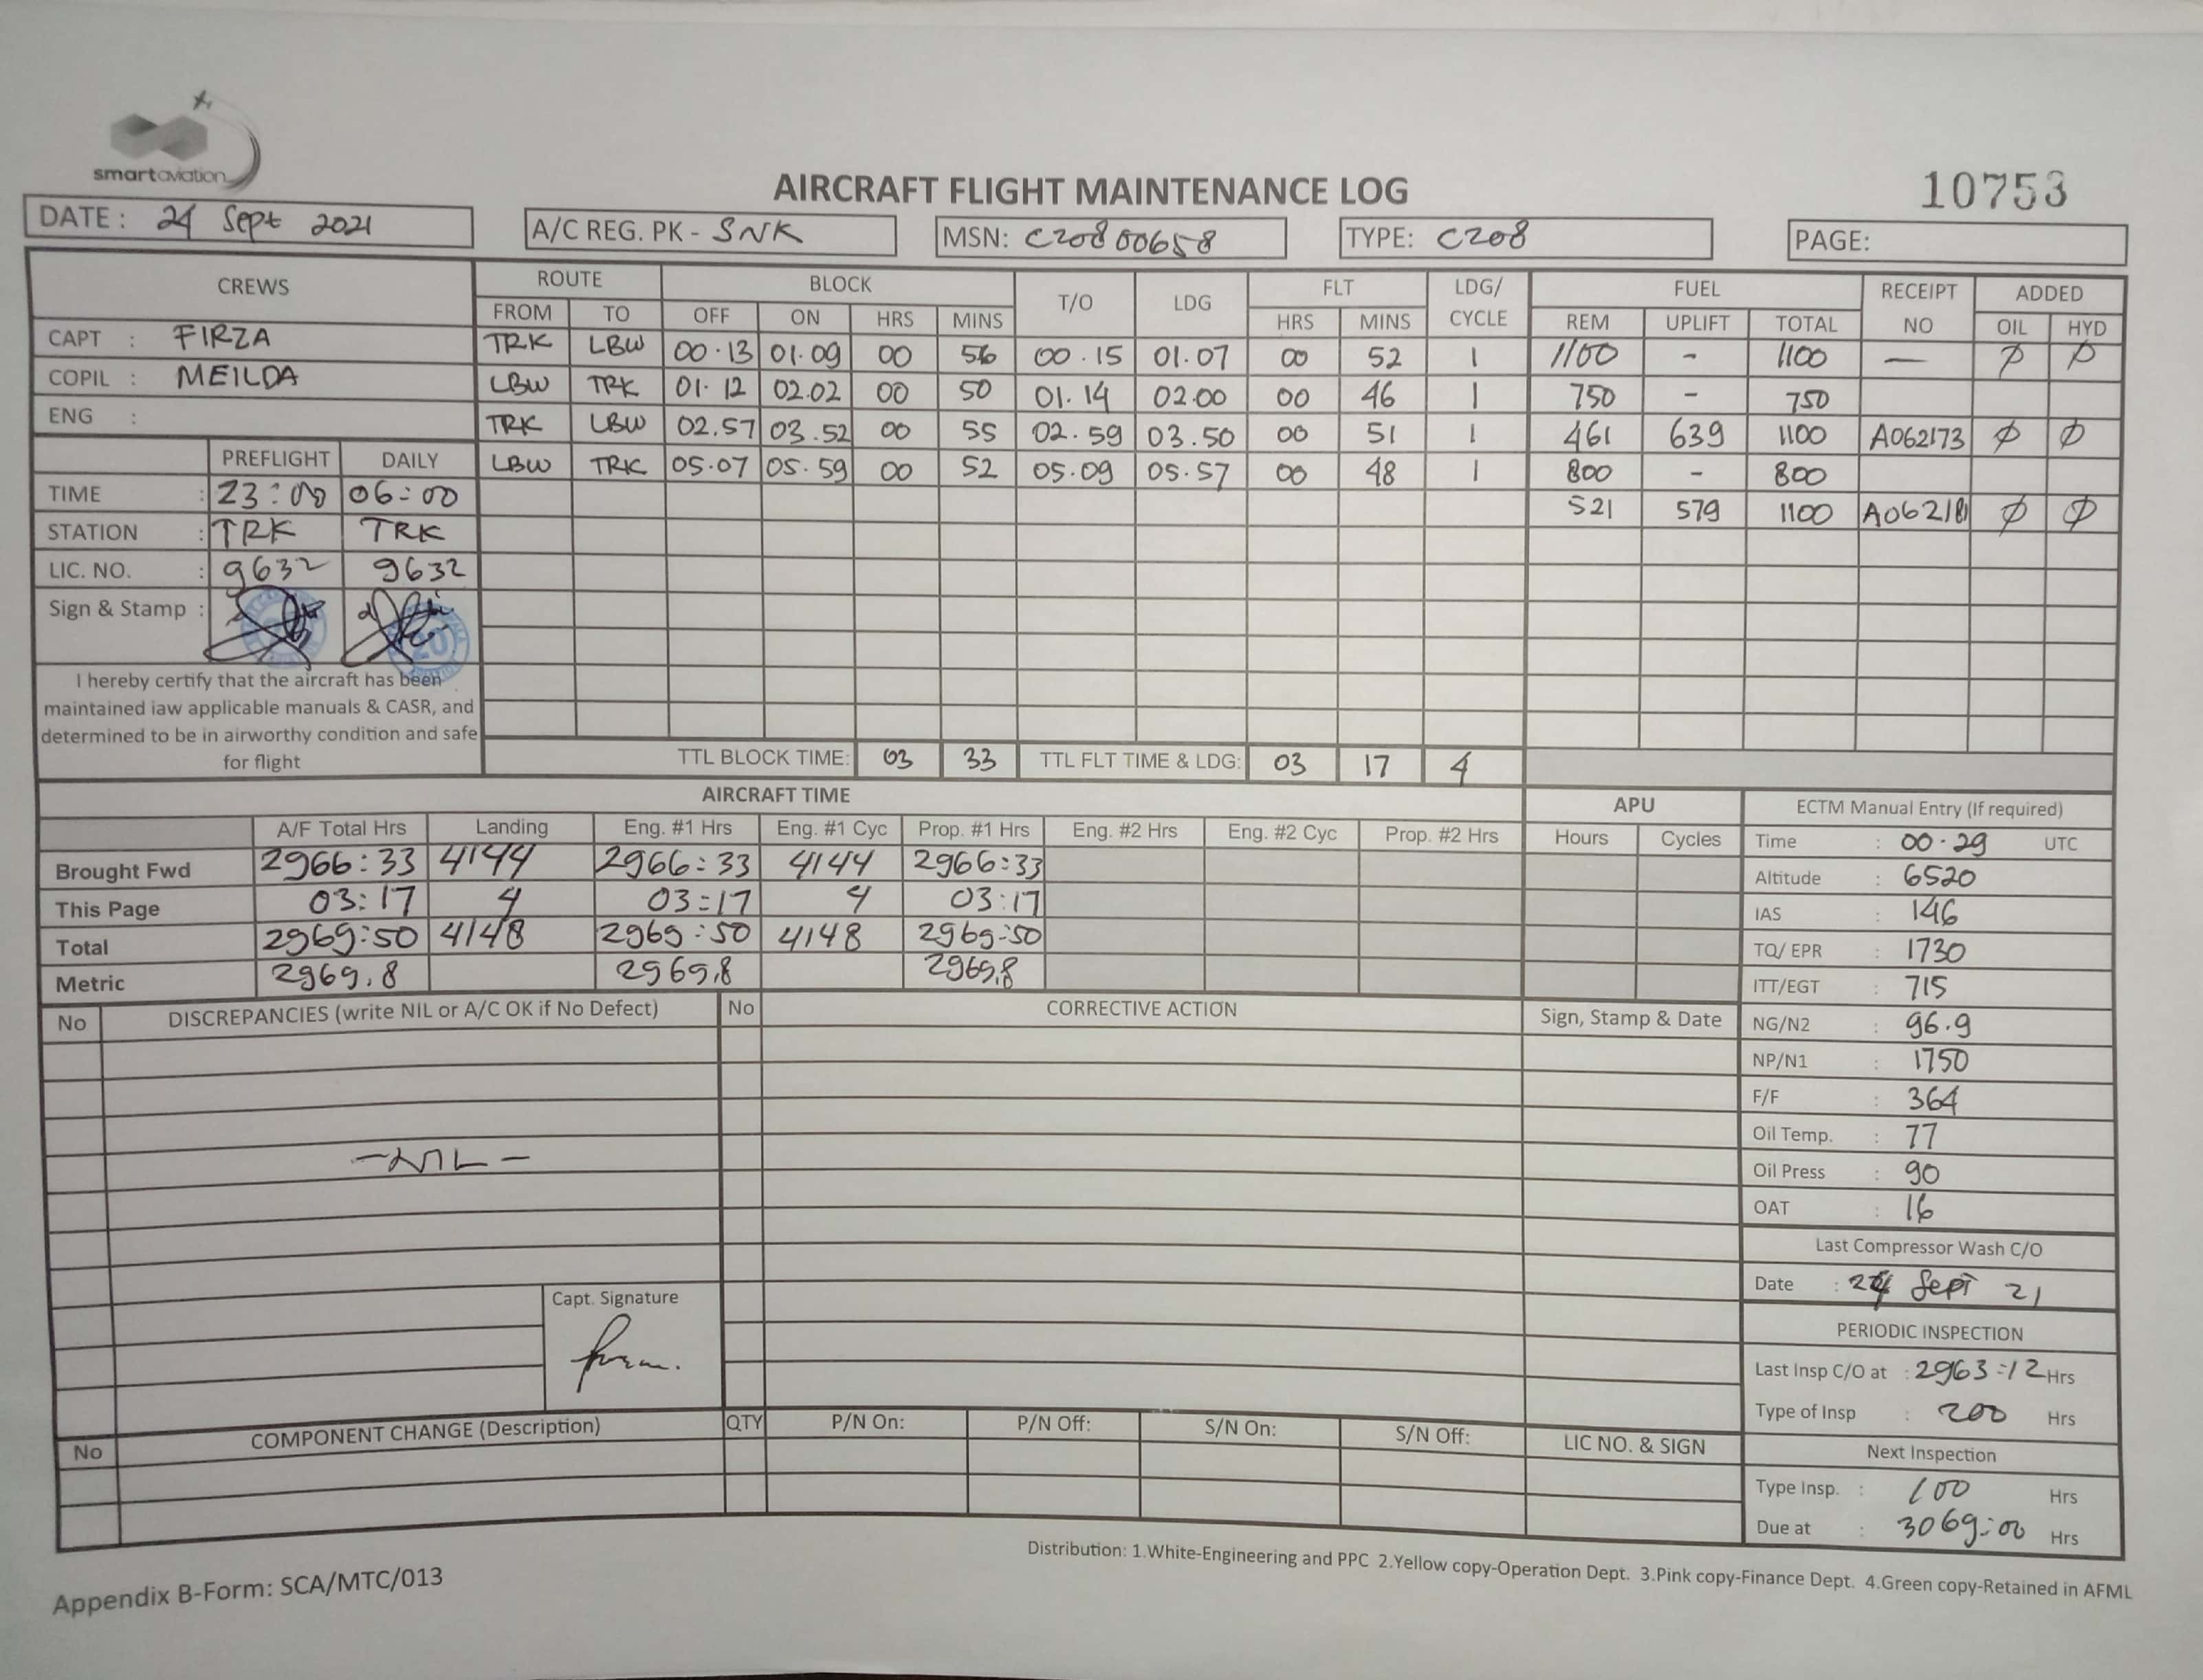 smartaviation
AIRCRAFT FLIGHT MAINTENANCE LOG
10753
DATE : 24 Sept 2021
A/C REG. PK - SNK
MSN: C20800658
TYPE: C208
PAGE:
CREWS
ROUTE BLOCK T/O LDG FLT LDG/ CYCLE FUEL RECEIPT NO ADDED
FROM TO OFF ON HRS MINS HRS MINS REM UPLIFT TOTAL OIL HYD
CAPT : FIRZA
COPIL : MEILDA
ENG :
TRK LBW 00.13 01.09 00 56 00.15 01.07 00 52 1 1100 - 1100 — Ø Ø
LBW TRK 01.12 02.02 00 50 01.14 02.00 00 46 1 750 - 750
TRK LBW 02.57 03.52 00 55 02.59 03.50 00 51 1 461 639 1100 A062173 Ø Ø
LBW TRK 05.07 05.59 00 52 05.09 05.57 00 48 1 800 - 800
521 579 1100 Ø Ø
PREFLIGHT DAILY
TIME : 23:00 06:00
STATION : TRK TRK
LIC. NO. : 9632 9632
Sign & Stamp :
20
I hereby certify that the aircraft has been
maintained iaw applicable manuals & CASR, and
determined to be in airworthy condition and safe
for flight
TTL BLOCK TIME: 03 33 TTL FLT TIME & LDG: 03 17 4
AIRCRAFT TIME
APU
A/F Total Hrs Landing Eng. #1 Hrs Eng. #1 Cyc Prop. #1 Hrs Eng. #2 Hrs Eng. #2 Cyc Prop. #2 Hrs Hours Cycles
Brought Fwd 2966:33 4144 2966:33 4144 2966:33
This Page 03:17 4 03:17 4 03:17
Total 2969:50 4148 2969:50 4148 2969:50
Metric 2969,8 2969,8 2969,8
ECTM Manual Entry (If required)
Time : 00.29 UTC
Altitude : 6520
IAS : 146
TQ/ EPR : 1730
ITT/EGT : 715
NG/N2 : 96.9
NP/N1 : 1750
F/F : 364
Oil Temp. : 77
Oil Press : 90
OAT : 16
Last Compressor Wash C/O
Date : 24 Sept 21
PERIODIC INSPECTION
Last Insp C/O at : 2963:12 Hrs
Type of Insp : 200 Hrs
Next Inspection
Type Insp. : 100 Hrs
Due at : 3069:00 Hrs
No DISCREPANCIES (write NIL or A/C OK if No Defect) No CORRECTIVE ACTION Sign, Stamp & Date
-NIL-
Capt. Signature
No COMPONENT CHANGE (Description) QTY P/N On: P/N Off: S/N On: S/N Off: LIC NO. & SIGN
Distribution: 1.White-Engineering and PPC 2.Yellow copy-Operation Dept. 3.Pink copy-Finance Dept. 4.Green copy-Retained in AFML
Appendix B-Form: SCA/MTC/013